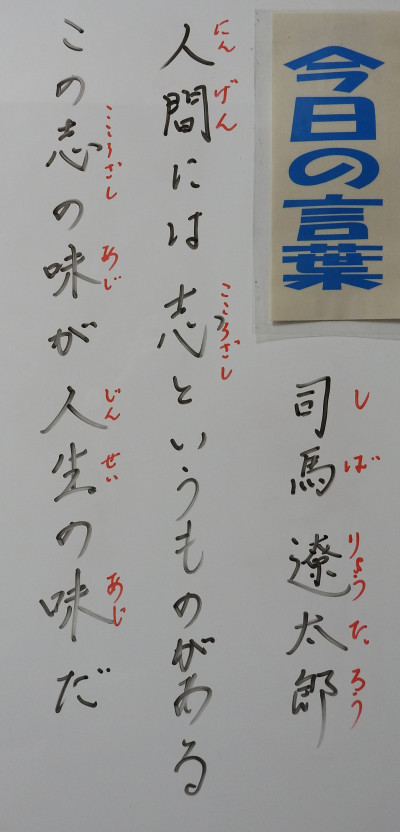 今日の言葉
司馬 遼太郎
しば りょうたろう
人間には志というものがある
にんげん こころざし
この志の味が人生の味だ
こころざし あじ じんせい あじ